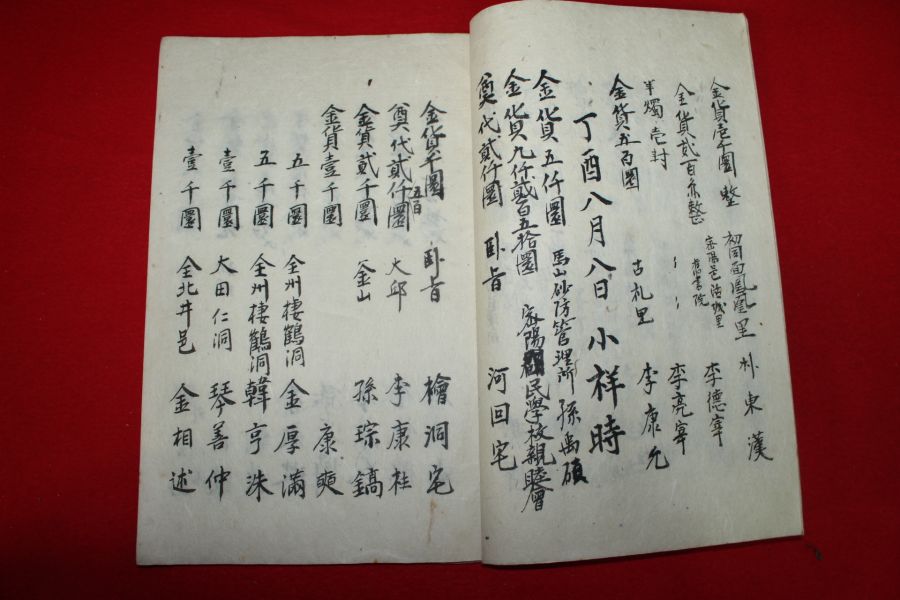 金貨壱千圜整 初同面鳳凰里 朴東漢
金貨貳百圜整 密陽邑活城里 舊書院 李德宰
半燭壱封 〃 〃 李亮宰
金貨五百圜 古札里 李康允
丁酉八月八日小祥時
金貨五仟圜 馬山砂防管理所 孫禹碩
金貨九仟貳百五拾圜 密陽國民學校親睦會
奠代貳仟圜 卧旨 河回宅
金貨千圜 卧旨 檜洞宅
奠代貳仟五百圜 大邱 李康桂
金貨貳千圜 釜山 孫琮鎬
金貨壹千圜 康奭
五千圜 全州棲鶴洞 金厚滿
五千圜 全州棲鶴洞 韓亨洙
壹千圜 大田仁洞 琴善仲
壹千圜 全北井邑 金相述